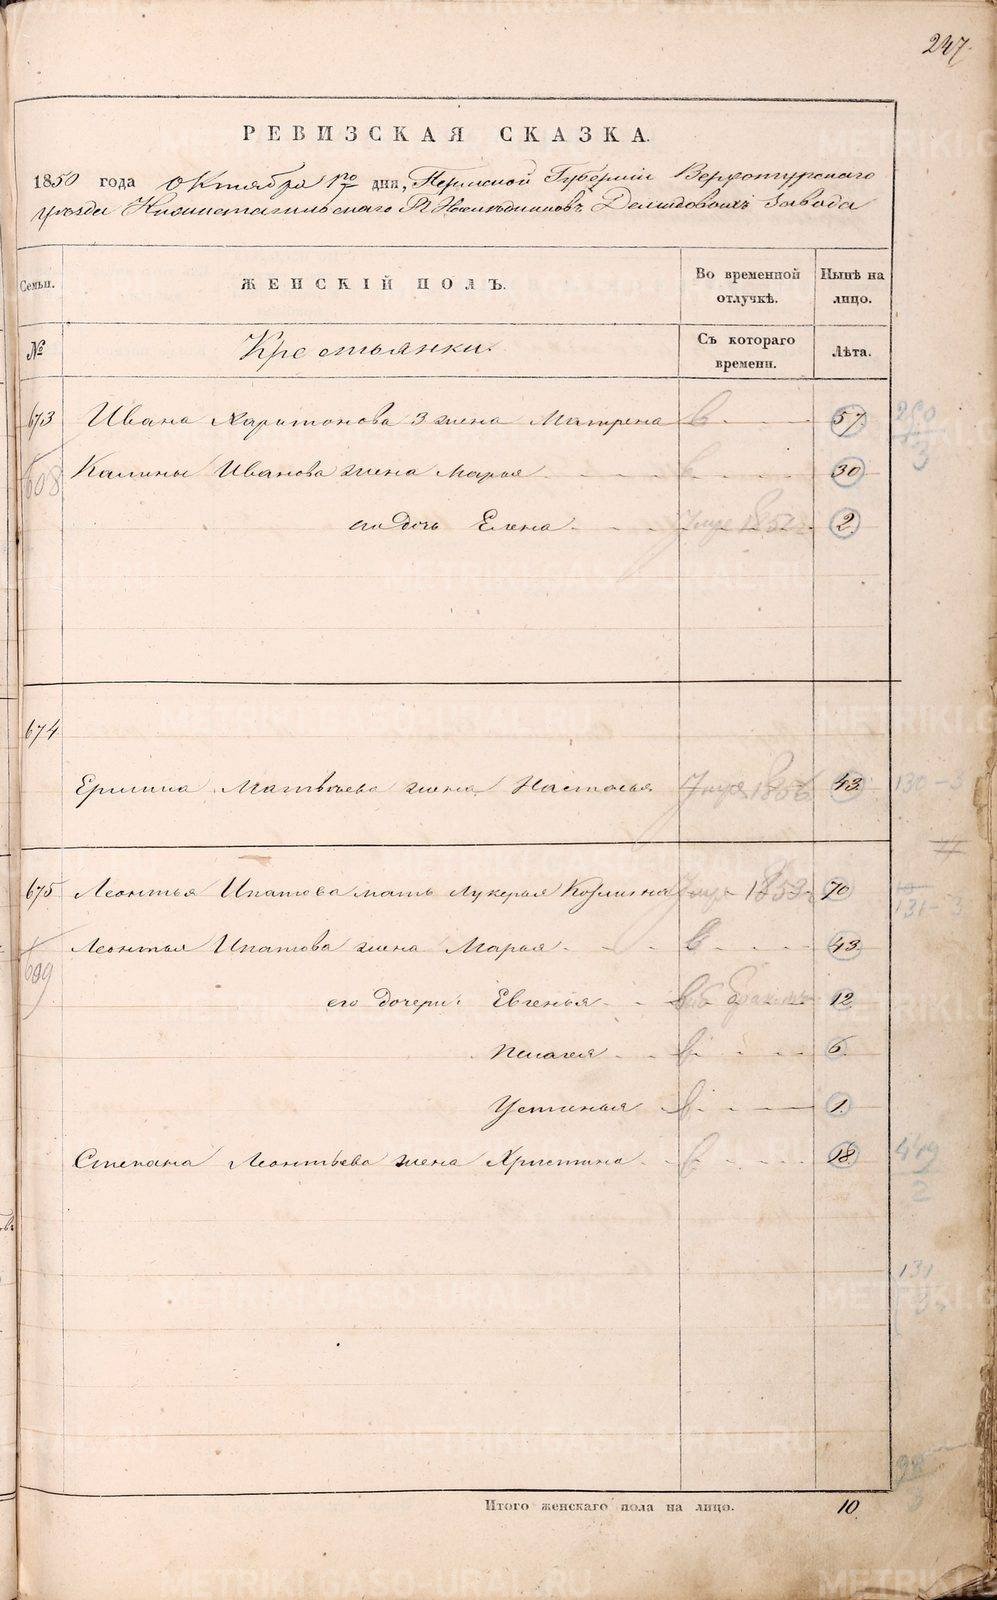 247.
РЕВИЗСКАЯ СКАЗКА.
1850 года Октября 1го дня, Пермской Губернiи Верхотурскаго
уѣзда Нижнетагильскаго Гг. Наслѣдниковъ Демидовыхъ Завода
Семьи. ЖЕНСКIЙ ПОЛЪ. Во временной отлучкѣ. Нынѣ на лицо.
№ Крестьянки. Съ котораго времени. Лѣта.
673 Ивана Харитонова 3 жена Матрена в 57
608 Калины Иванова жена Марья в 30
его дочь Елена Умре 1852 2
674
Ермила Матвѣева жена Настасья Умре 1856 43 130-3
675 Леонтья Ипатова мать Лукерья Козмина Умре 1853 70 131-3
609 Леонтья Ипатова жена Марья в 43
его дочери: Евгенья 12
Пелагея в 6
Устинья в 1
Степана Леонтьева жена Христина в 18 419
2
131
3
98
3
Итого женскаго пола на лицо. 10
METRIKI.GASO-URAL.RU